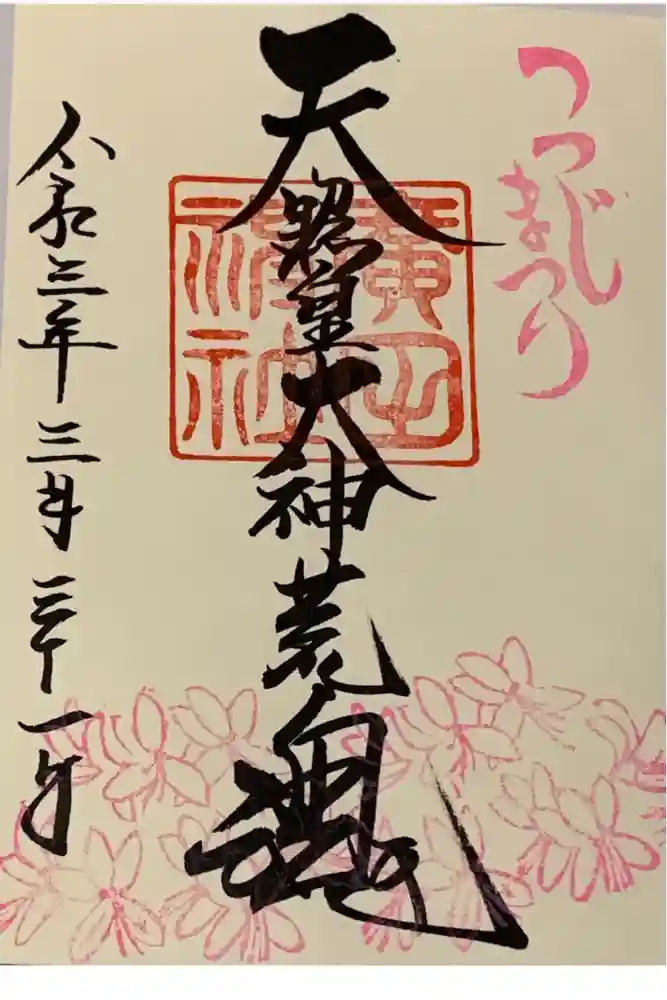 つつじ
まつり
廣田
神社
天照皇大神荒魂
令和三年三月三十一日